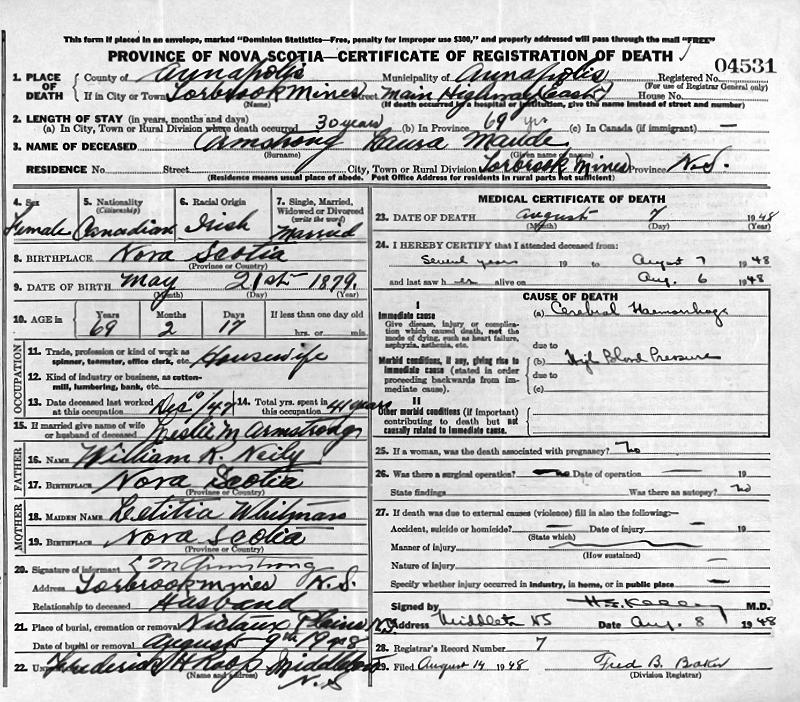 This form if placed in an envelope, marked "Dominion Statistics—Free, penalty for improper use $300," and properly addressed will pass through the mail "FREE"
PROVINCE OF NOVA SCOTIA—CERTIFICATE OF REGISTRATION OF DEATH
04531
1. PLACE OF DEATH
County of Annapolis Municipality of Annapolis Registered No.
(For use of Registrar General only)
If in City or Town Torbrook Mines Street Main Highway (East) House No.
(Name) (If death occurred in a hospital or institution, give the name instead of street and number)
2. LENGTH OF STAY (in years, months and days)
(a) In City, Town or Rural Division where death occurred 30 years (b) In Province 69 yrs (c) In Canada (if immigrant) —
3. NAME OF DECEASED Armstrong Laura Maude
(Surname) (Given name or names)
RESIDENCE No. Street City, Town or Rural Division Torbrook Mines Province N.S.
(Residence means usual place of abode. Post Office Address for residents in rural parts not sufficient)
4. Sex Female
5. Nationality (Citizenship) Canadian
6. Racial Origin Irish
7. Single, Married, Widowed or Divorced (write the word) Married
8. BIRTHPLACE Nova Scotia
(Province or Country)
9. DATE OF BIRTH May 21st 1879.
(Month) (Day) (Year)
10. AGE in Years Months Days If less than one day old
69 2 17 hrs. or min.
OCCUPATION
11. Trade, profession or kind of work as spinner, teamster, office clerk, etc. Housewife
12. Kind of industry or business, as cotton-mill, lumbering, bank, etc.
13. Date deceased last worked at this occupation Dec 10/47
14. Total yrs. spent in this occupation 41 years
15. If married give name of wife or husband of deceased Leslie M Armstrong
FATHER
16. NAME William K. Neily
17. BIRTHPLACE Nova Scotia
(Province or Country)
MOTHER
18. MAIDEN NAME Letitia Whitman
19. BIRTHPLACE Nova Scotia
(Province or Country)
20. Signature of informant L M Armstrong
Address Torbrook mines N.S.
Relationship to deceased Husband
21. Place of burial, cremation or removal Nictaux Plains N.S.
Date of burial or removal August 9th 1948
22. Frederick H Roop Middleton N.S
(Name and address)
MEDICAL CERTIFICATE OF DEATH
23. DATE OF DEATH August 7 1948
(Month) (Day) (Year)
24. I HEREBY CERTIFY that I attended deceased from:
Several years 19 to August 7 1948
and last saw her alive on Aug. 6 1948
CAUSE OF DEATH
I
Immediate cause
Give disease, injury or complication which caused death, not the mode of dying, such as heart failure, asphyxia, asthenia, etc.
(a) Cerebral Haemorrhage
due to
Morbid conditions, if any, giving rise to immediate cause (stated in order proceeding backwards from immediate cause).
(b) High Blood Pressure
due to
(c)
II
Other morbid conditions (if important) contributing to death but not causally related to immediate cause.
25. If a woman, was the death associated with pregnancy? no
26. Was there a surgical operation? no Date of operation — 19
State findings Was there an autopsy? no
27. If death was due to external causes (violence) fill in also the following:—
Accident, suicide or homicide? — Date of injury — 19
(State which)
Manner of injury
(How sustained)
Nature of injury
Specify whether injury occurred in industry, in home, or in public place —
Signed by M.D.
Address Middleton NS Date Aug. 8 1948
28. Registrar's Record Number 7
29. Filed August 14 1948 Fred B. Baker
(Division Registrar)